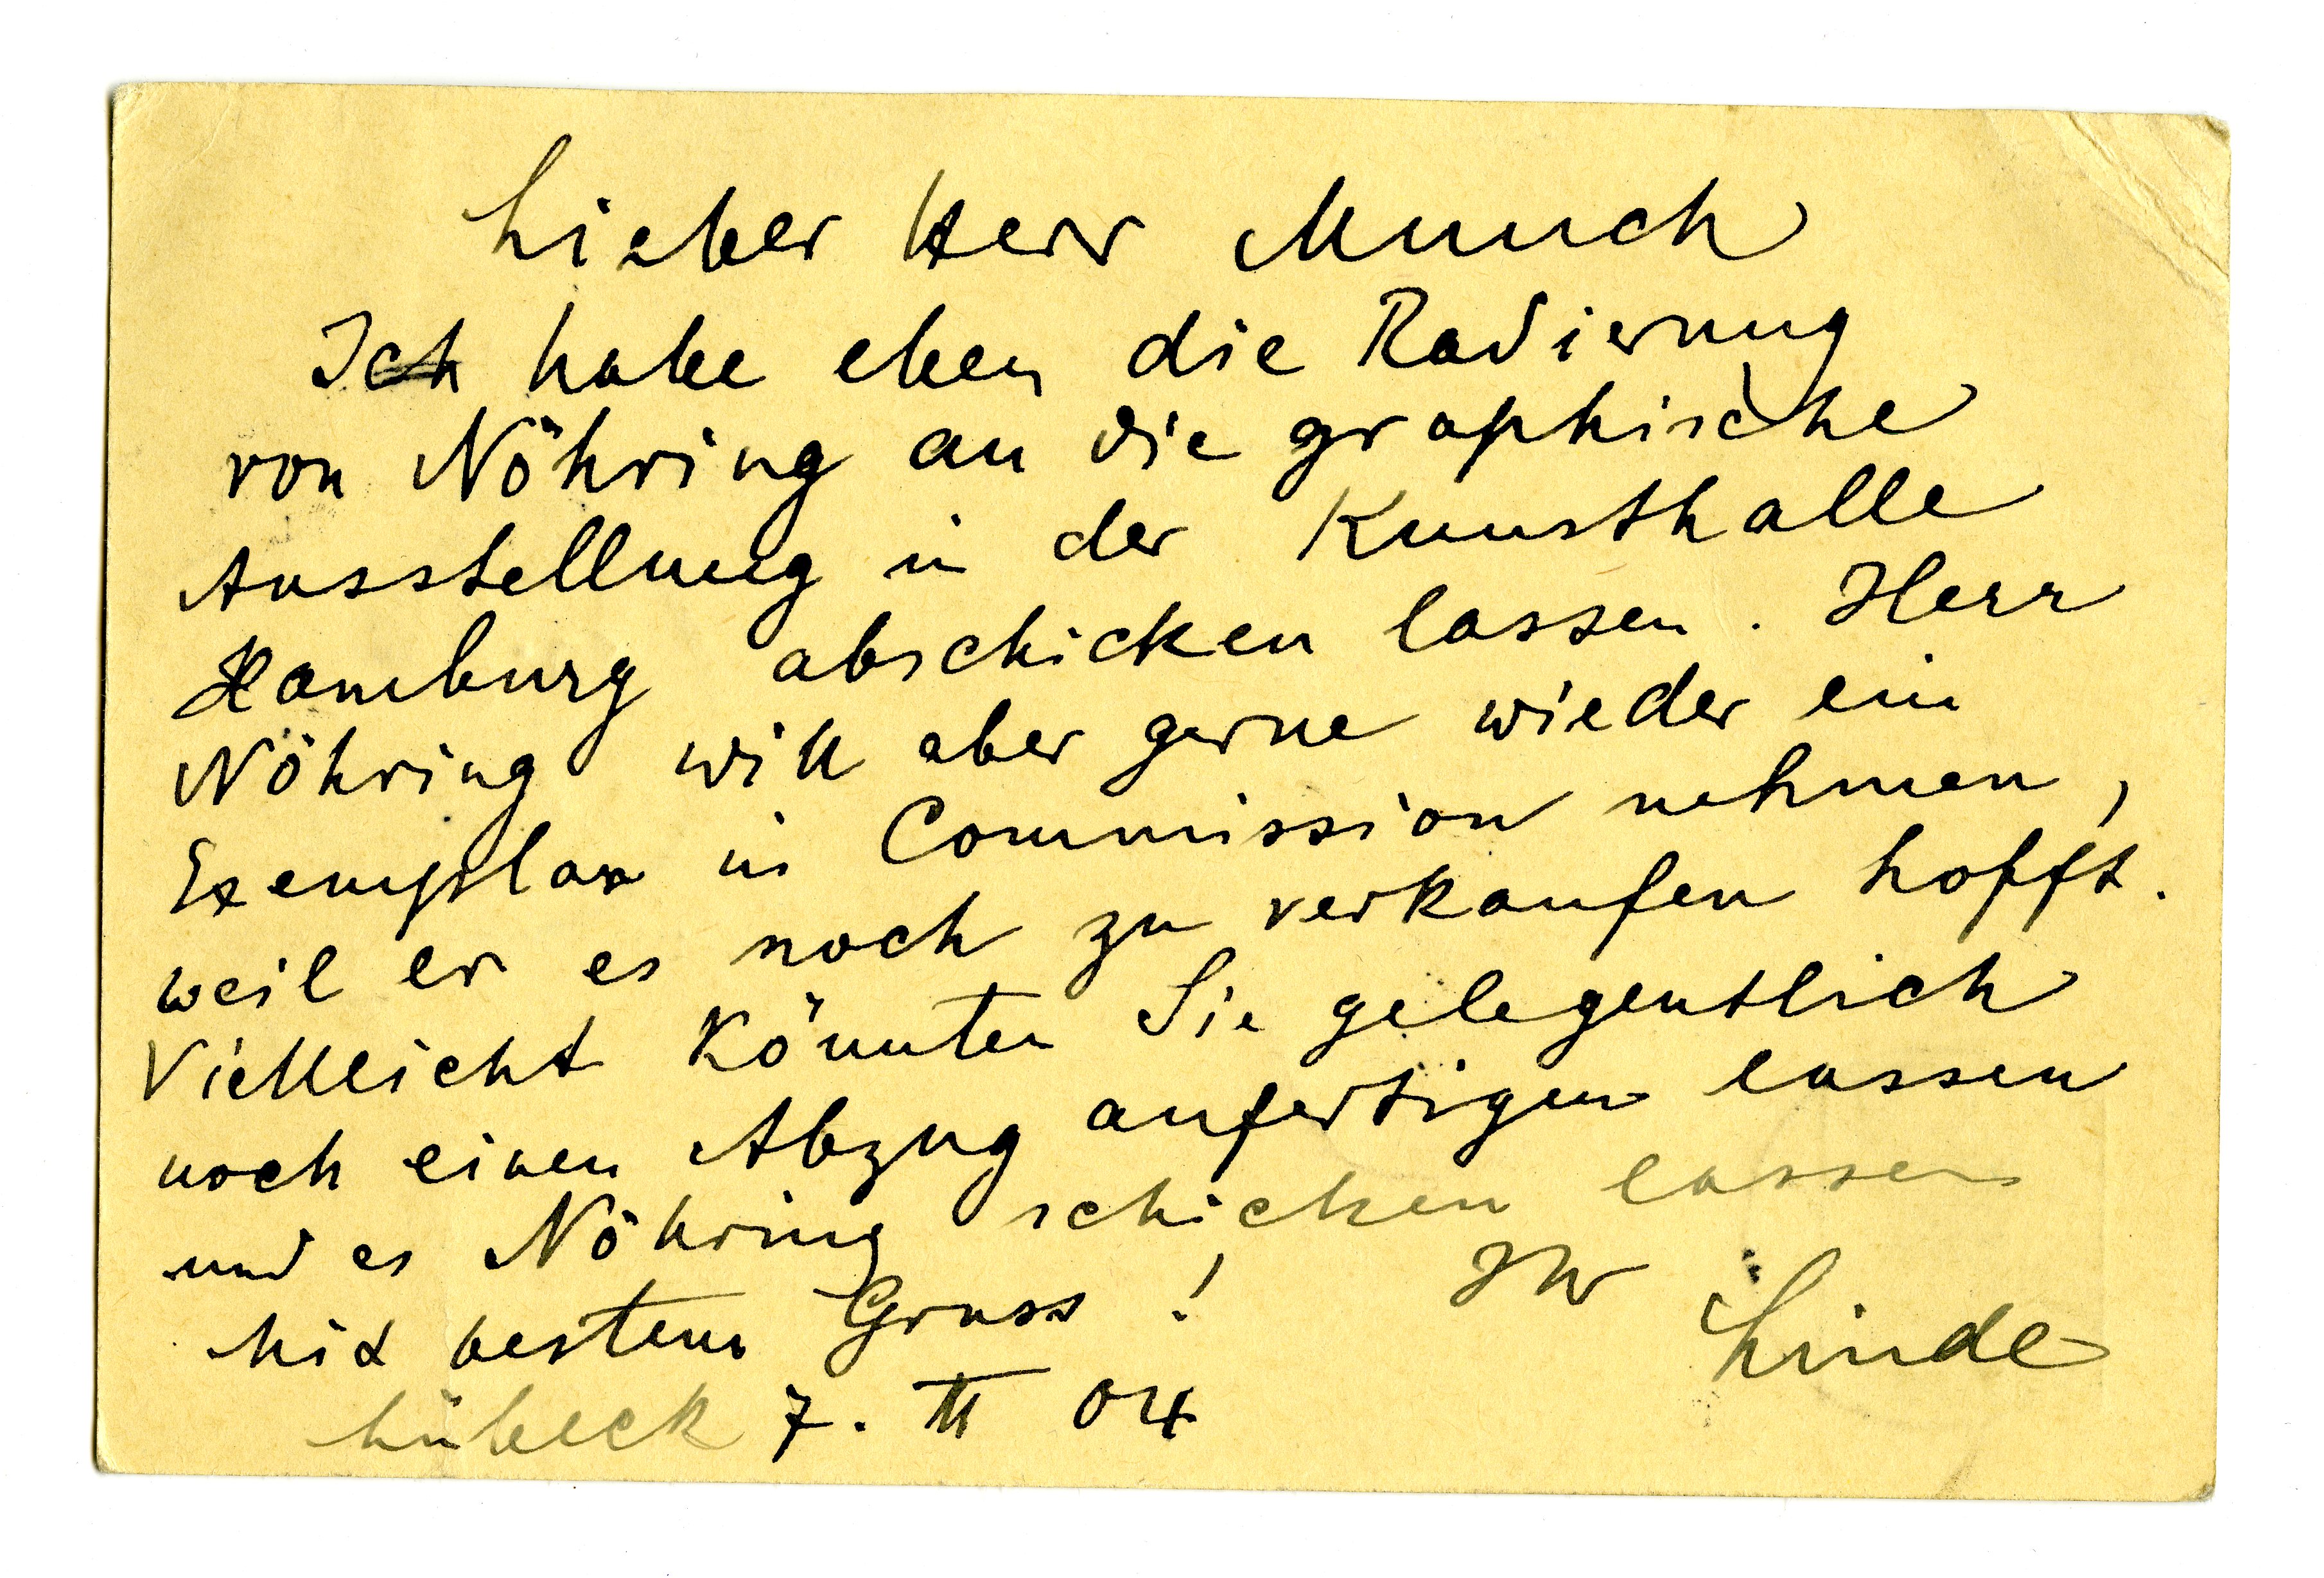 Lieber Herr Munch
Ich habe eben die Radierung
von Nöhring an die graphische
Ausstellung in der Kunsthalle
Hamburg abschicken lassen. Herr
Nöhring will aber gerne wieder ein
Exemplar in Commission nehmen,
weil er es noch zu verkaufen hofft.
Vielleicht könnten Sie gelegentlich
noch einen Abzug anfertigen lassen
und es Nöhring schicken lassen
Mit bestem Gruss! Ihr
Linde
Lübeck 7. II 04